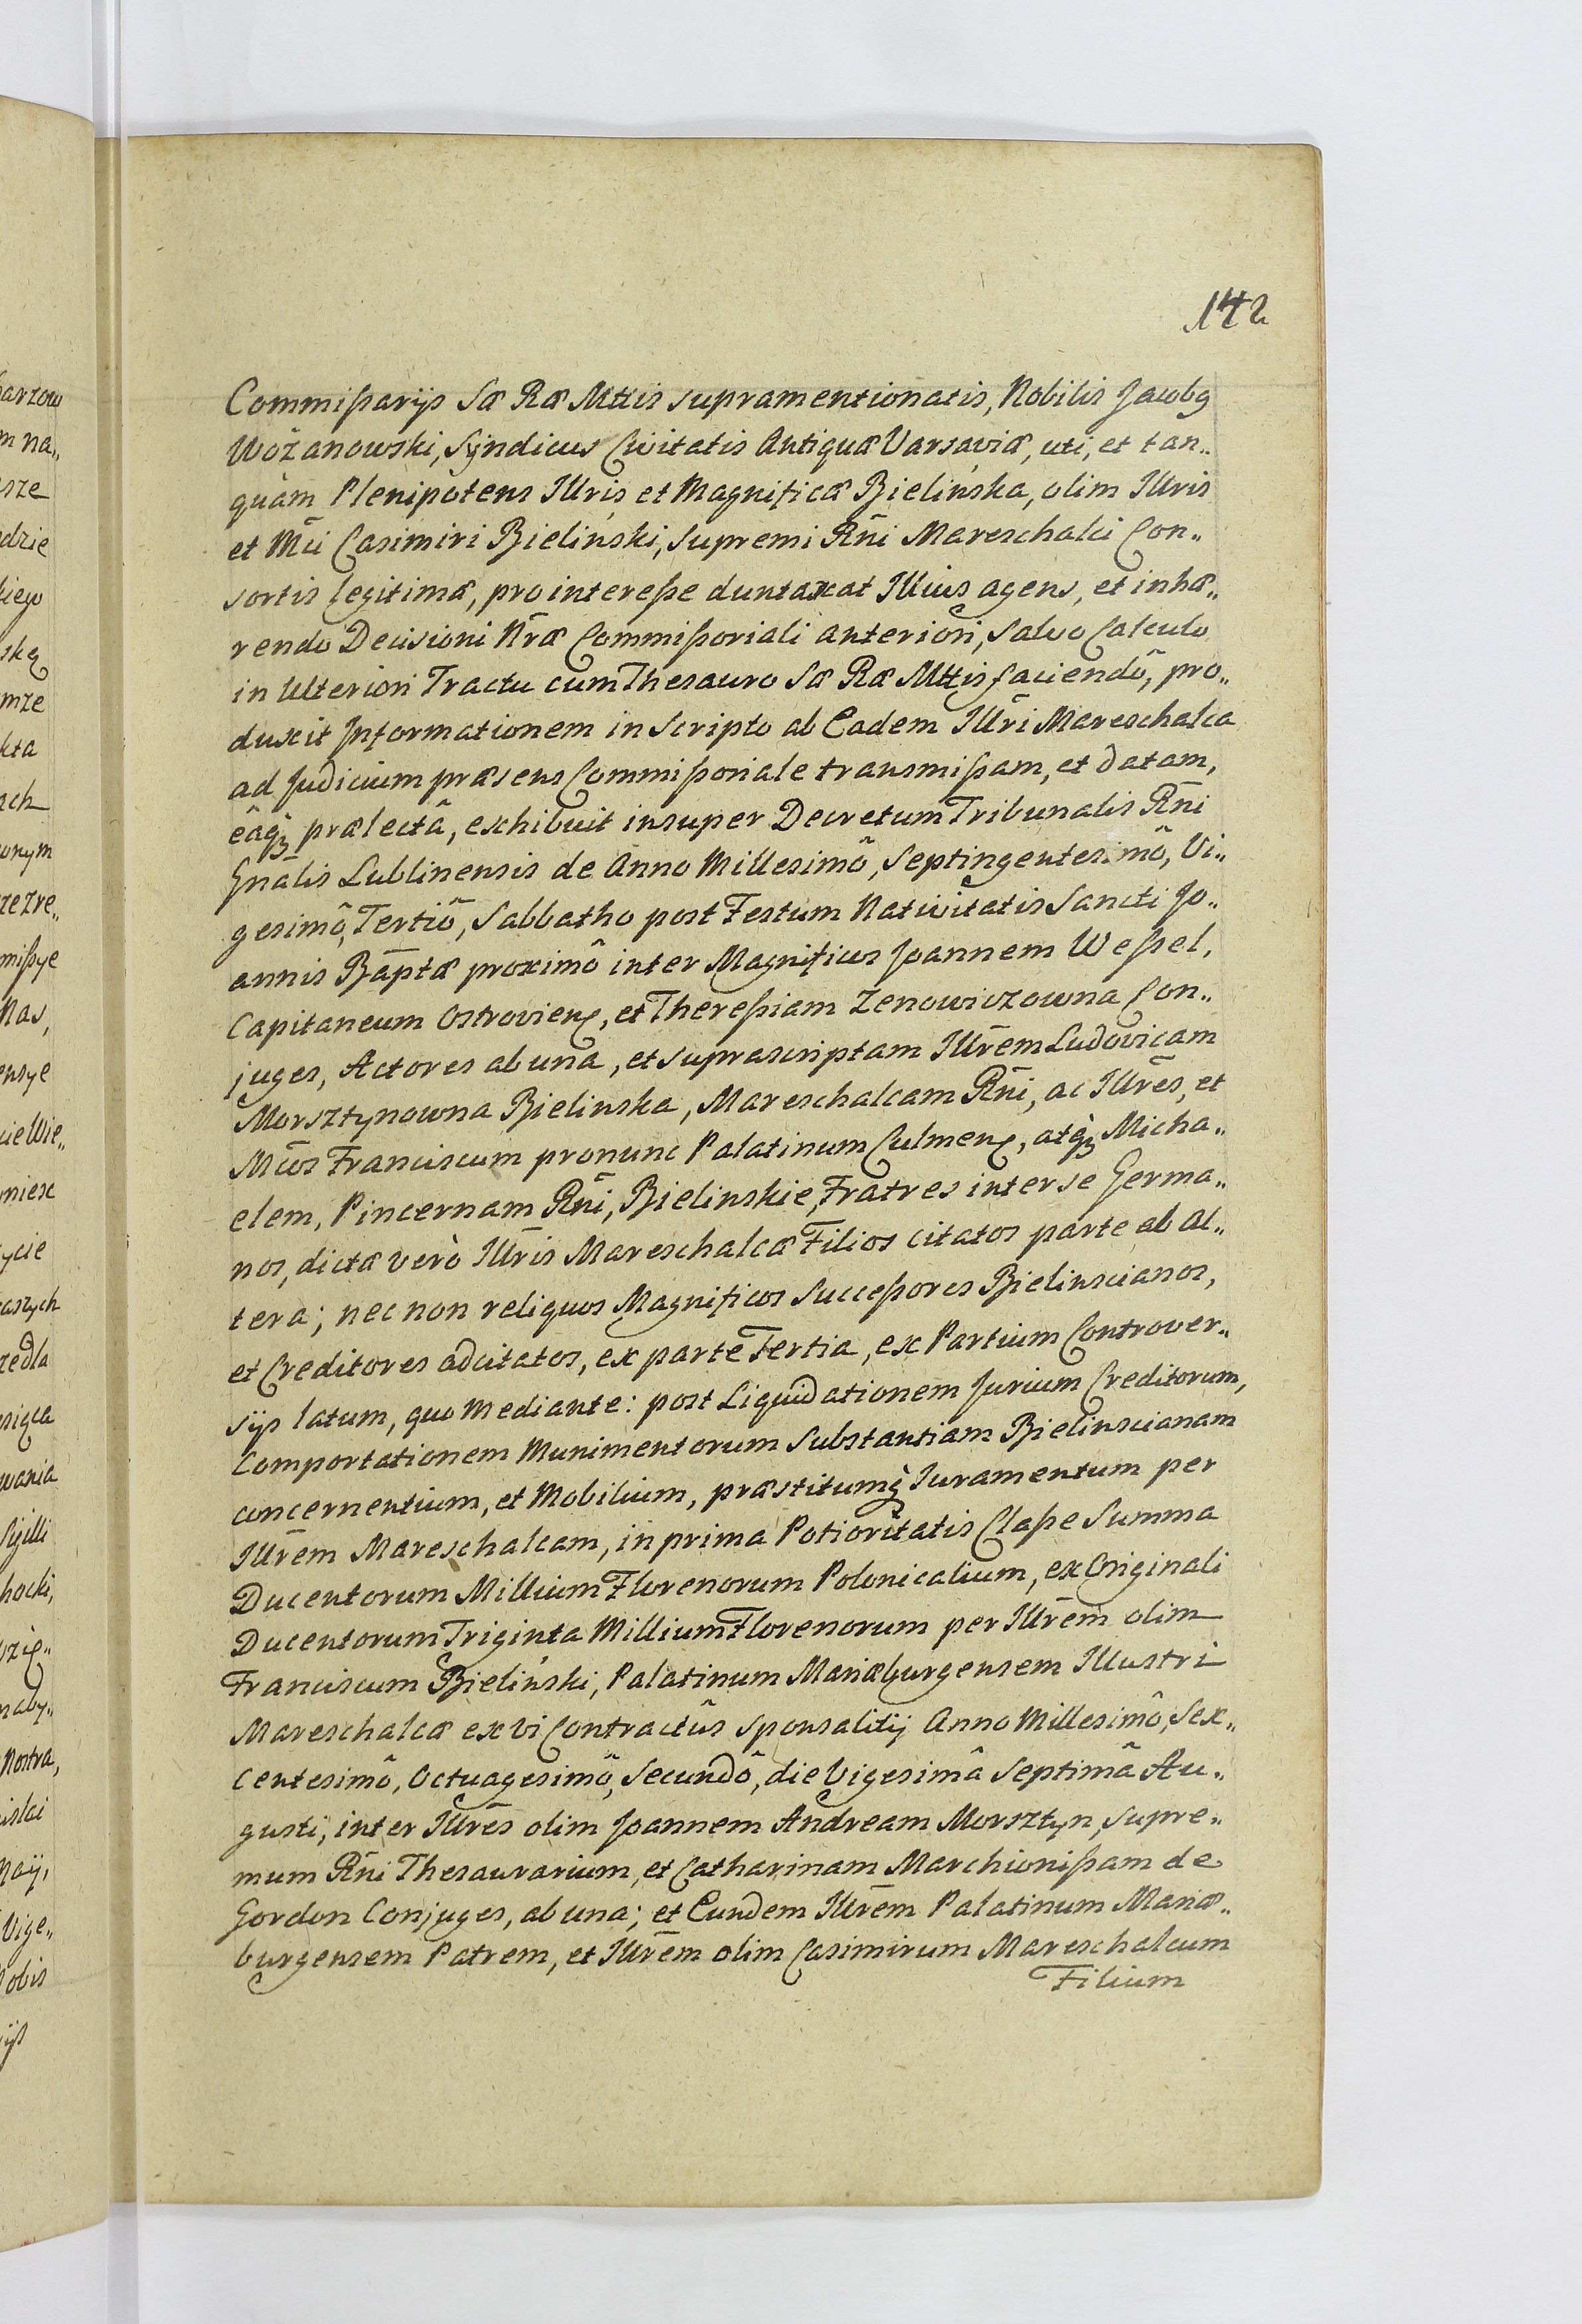 142
Commißarÿs Sæ Ræ Mttis supramentionatis, Nobilis Jacobq
Wożanowski, Sÿndicus Civitatis Antiquæ Varsaviæ, uti, et tan„
quàm Plenipotens Illris et Magnificæ Bielińska, olim Illris
et Mci Casimiri Bieliński, Supremi Rni Mareschalci Con„
sortis legitimæ, pro intereße duntaxat Illius agens, et inhæ„
rendo Decisioni Nræ Commißoriali anteriori, Salvo Calculo
in Ulteriori Tractu cum Thesauro Sæ Ræ Mttis faciendô, pro„
duxit Informationem in Scripto ab Eadem Illri Mareschalca
ad Judicium præsens Commißoriale transmißam, et datam,
eâqꝫ prælectâ, exhibuit insuper Decretum Tribunalis Rni
Gnalis Lublinensis de Anno Millesimô, Septingentesimô, Vi„
gesimô, Tertiô, Sabbatho post Festum Nativitatis Sancti Jo„
annis Baptæ proximô inter Magnificos Joannem Weßel,
Capitaneum Ostrovienę, et Thereßiam Zenowiczowna Con„
juges, Actores ab una, et suprascriptam Illrem Ludovicam
Morsztynowna Bielinska, Mareschalcam Rni, ac Illres, et
Mcos Franciscum pronunc Palatinum Culmenę, atqꝫ Micha„
elem, Pincernam Rni, Bielinskie, Fratres inter se Germa„
nos, dictæ verò Illris Mareschalcæ Filios citatos parte ab al„
tera; nec non reliquos Magnificos Succeßores Bielinscianos,
et Creditores adcitatos, ex parte Tertia, ex Partium Controver„
sÿs latum, quo mediante: post Liquidationem Jurium Creditorum,
Comportationem Munimentorum Substantiam Bielinscianam
concernentium, et Mobilium, præstitumqꝫ Iuramentum per
Illrem Mareschalcam, in prima Potioritatis Claße Summa
Ducentorum Millium Florenorum Polonicalium, ex Originali
Ducentorum Triginta Millium Florenorum per Illrem olim
Franciscum Bieliński, Palatinum Mariæburgensem Illustri
Mareschalcæ ex vi Contractûs Sponsalitÿ Anno Millesimô, Sex„
centesimô, Octuagesimô, Secundô, die Vigesimâ Septimâ Au„
gusti, inter Illres olim Joannem Andream Morsztyn, Supre„
mum Rni Thesaurarium, et Catharinam Marchionißam de
Gordon Conjuges, ab una; et Eundem Illrem Palatinum Mariæ„
burgensem Patrem, et Illrem olim Casimirum Mareschalcum
Filium